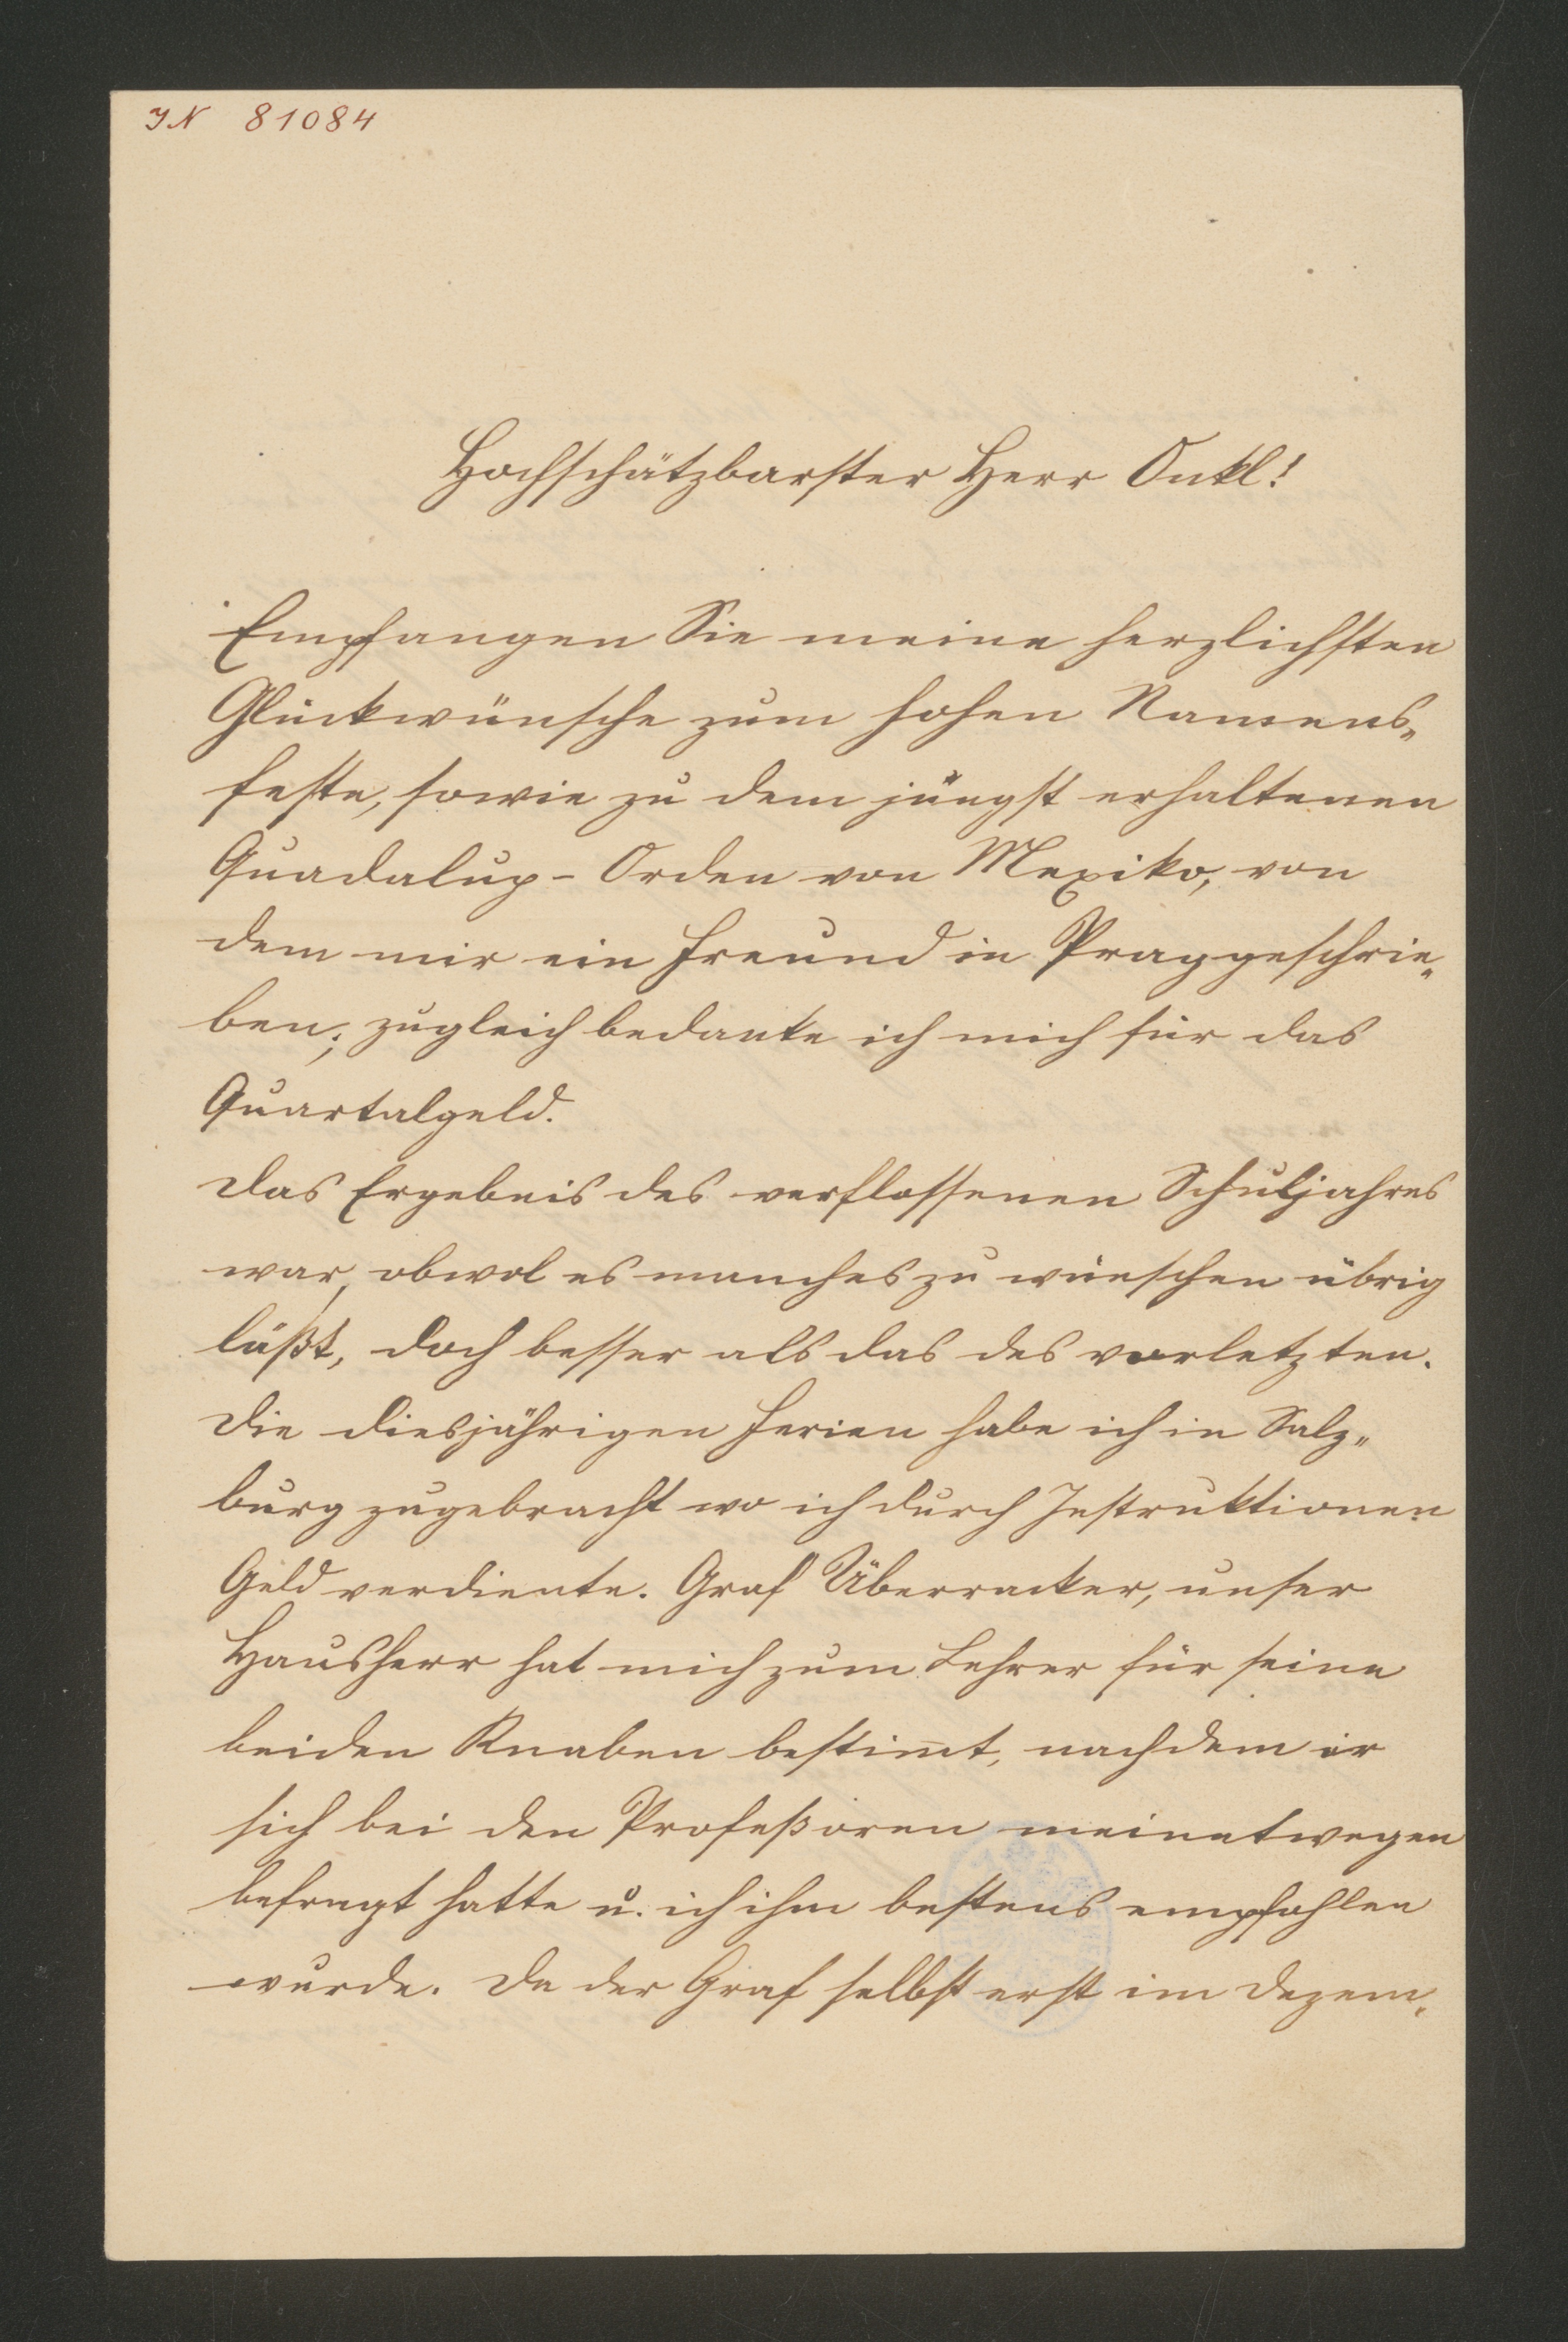 IN 81084
Hochschätzbarster Herr Onkl!
Empfangen Sie meine herzlichsten
Glückwünsche zum hohen Namens„
feste, sowie zu dem jüngst erhaltenen
Quadalup-Orden von Mexiko, von
dem mir ein Freund in Prag geschrie„
ben; zugleich bedanke ich mich für das
Quartalgeld.
Das Ergebnis des verflossenen Schuljahres
war, obwol es manches zu wünschen übrig
läßt, doch besser als das des vorletzten.
Die diesjährigen Ferien habe ich in Salz„
burg zugebracht wo ich durch Instruktionen
Geld verdiente. Graf Überracker, unser
Hausherr hat mich zum Lehrer für seine
beiden Knaben bestim̅t, nachdem er
sich bei den Profeßoren meinetwegen
befragt hatte u. ich ihm bestens empfohlen
wurde. Da der Graf selbst erst im Dezem„